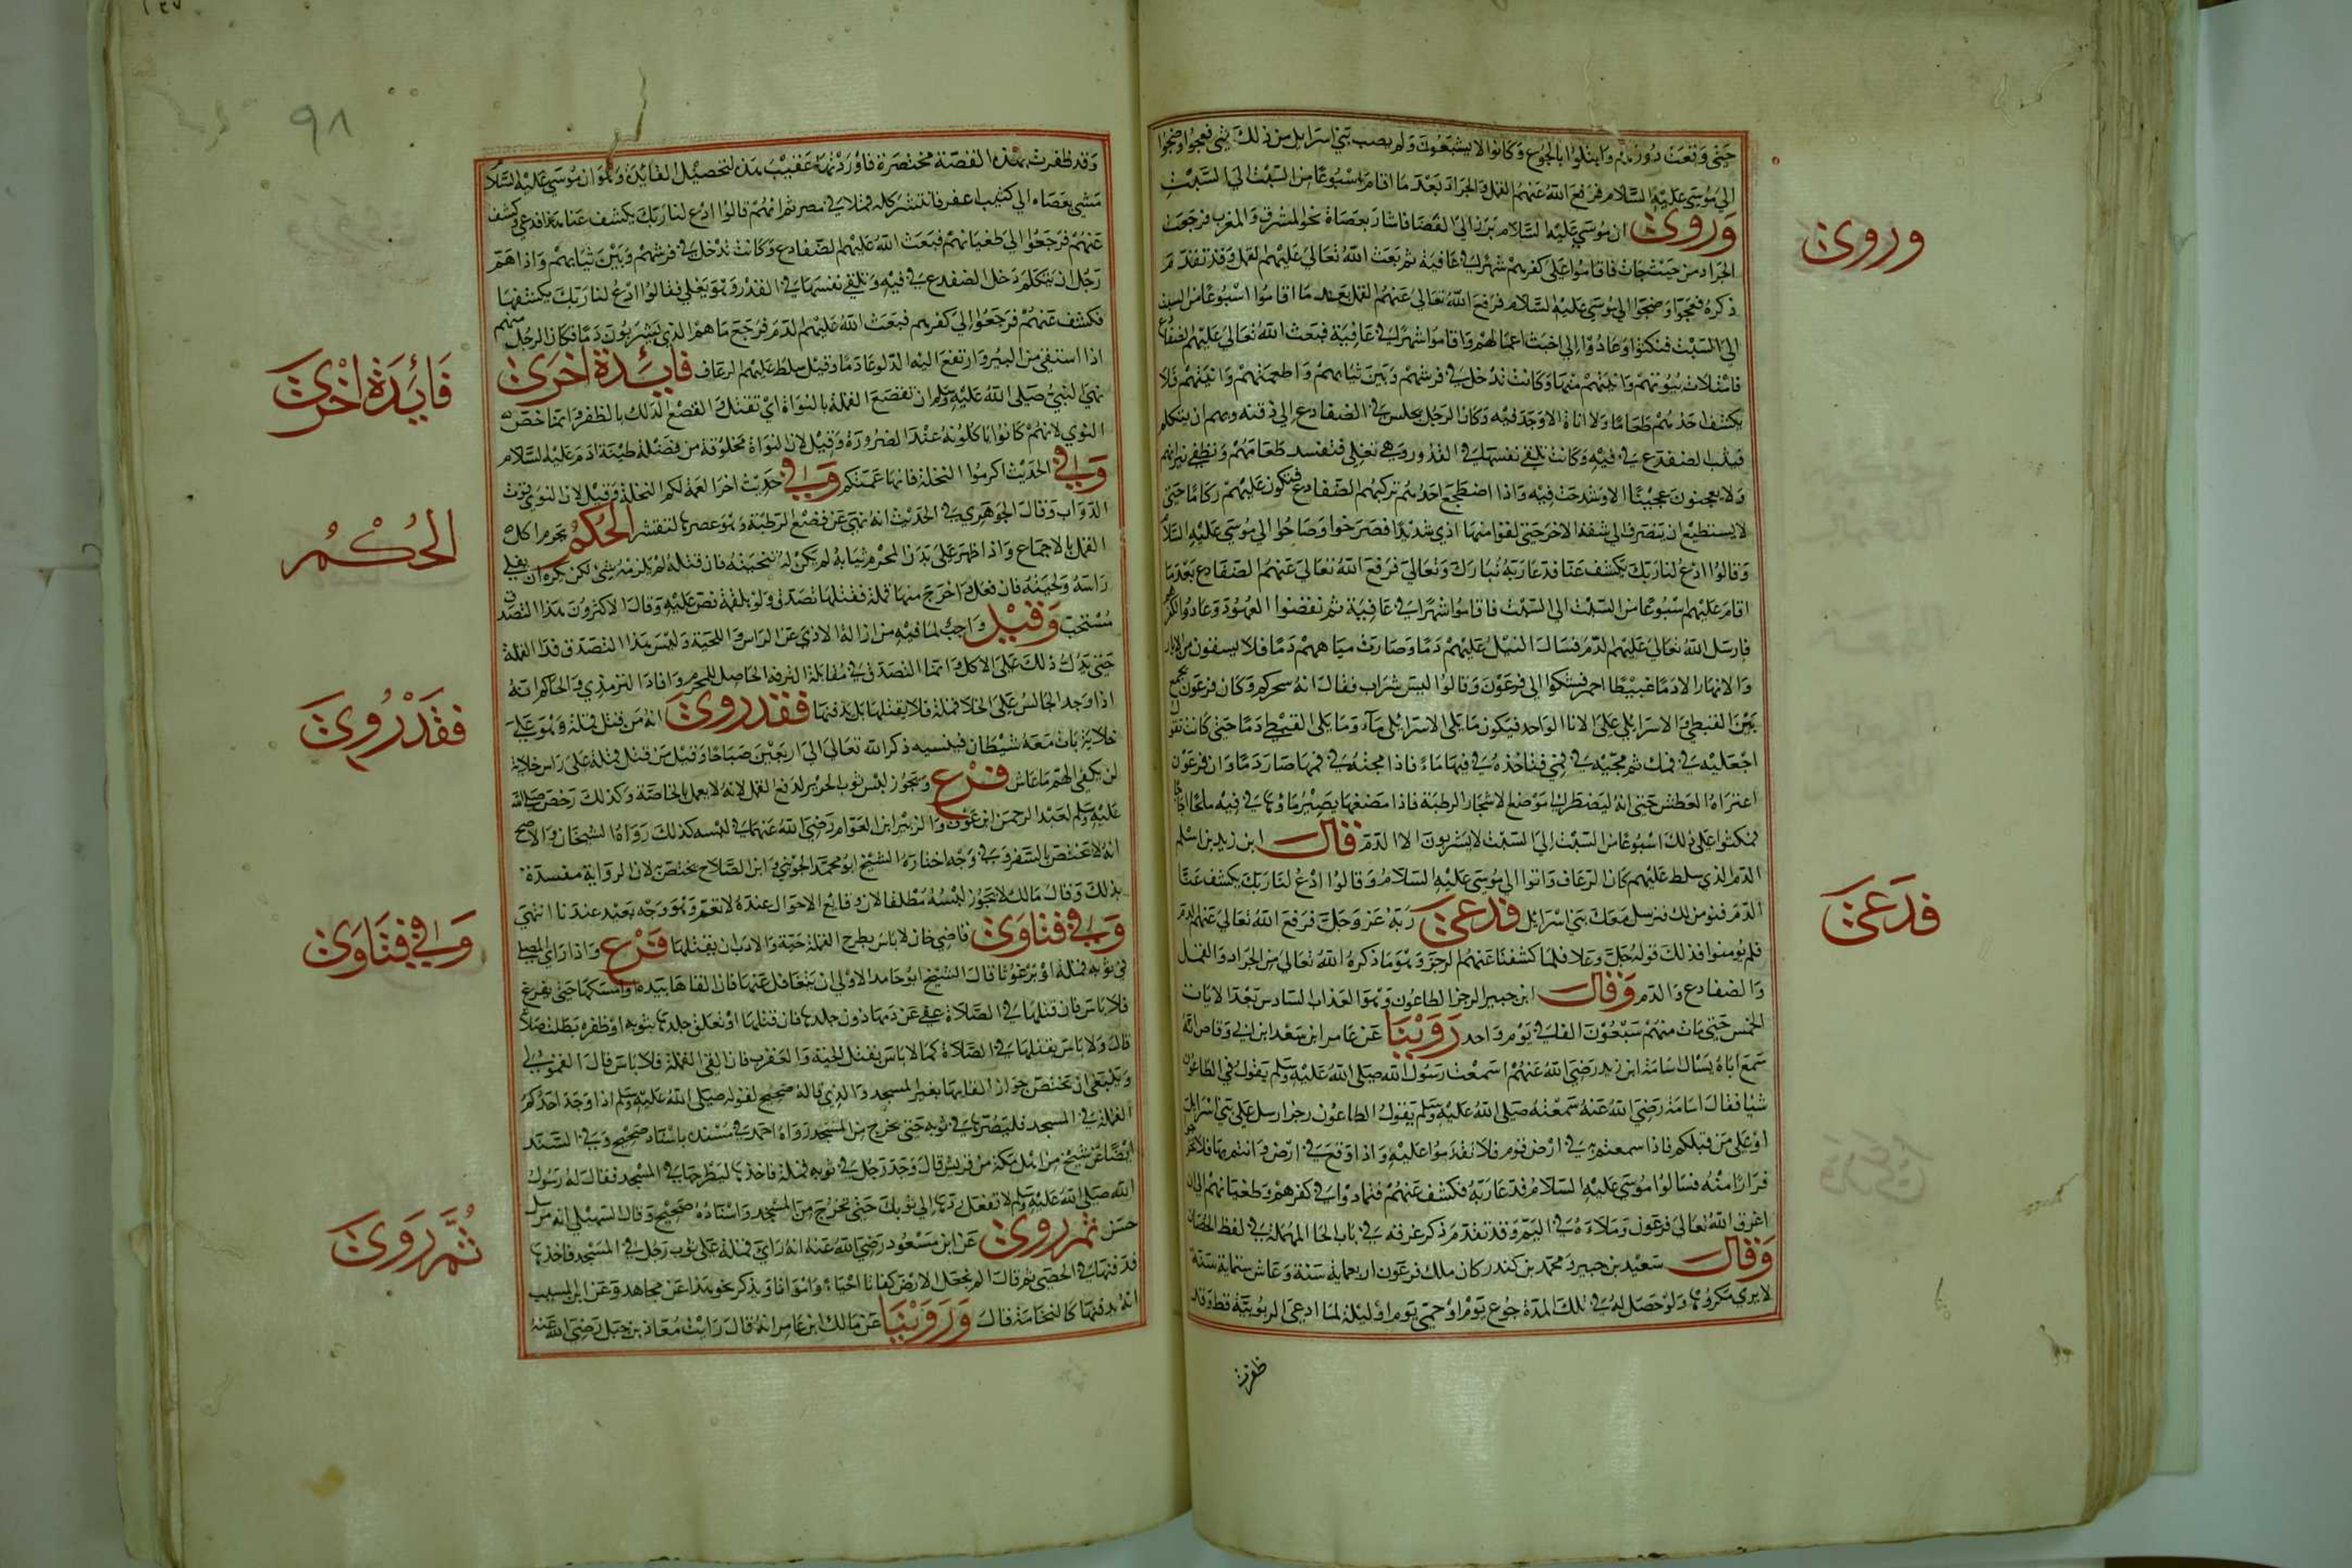 حتى وقعت دورهم وابتلوا بالجوع وكانوا لا يشبعون ولم يصب بني اسرايل من ذلك شي فعجوا وضجوا
الي موسى عليه السلام فرفع الله عنهم القمل والجراد بعد ما اقام اسبوعا من السبت الى السبت
وروى ان موسى عليه السلام برز الى الفضا فاشار بعصاه نحو المشرق والمغرب فرجعت
الجراد من حيث جات فاقاموا على كفرهم شهرا في عافية ثم بعث الله تعالى عليهم القمل وقد تقدم
ذكره فعجوا وضجوا الى موسى عليه السلام فرفع الله تعالى عنهم القمل بعد ما اقاموا اسبوعا من السبت
الى السبت فنكثوا وعادوا الى اخبث اعمالهم واقاموا شهرا في عافية فبعث الله تعالى عليهم الضفادع
فامتلات بيوتهم وافنيتهم منها وكانت تدخل في فرشهم وبين ثيابهم واطعمتهم وانيتهم فلا
يكشف احدهم طعاما ولا اناء الا وجد فيه وكان الرجل يجلس في الضفادع الى ذقنه ويهم ان يتكلم
فيثب الضفدع في فيه وكانت تلقي نفسها في القدور وهي تغلي فتفسد طعامهم وتطفي نيرانهم
ولا يعجنون عجينا الا وشدخت فيه واذا اضطجع احدهم تركبهم الضفادع فتكون عليهم ركاما حتى
لا يستطيع ان ينصرف الى شقه الاخر حتى لقوا منها اذي شديدا فصرخوا وصاحوا الى موسى عليه السلام
وقالوا ادع لنا ربك يكشف عنا فدعا ربه تبارك وتعالى فرفع الله تعالى عنهم الضفادع بعد ما
اقام عليهم اسبوعا من السبت الى السبت فاقاموا شهرا في عافية ثم نقضوا العهود وعادوا
فارسل الله تعالى عليهم الدم فسال النيل عليهم دما وصارت مياههم دما فلا يسقون من الابار
والانهار الا دما عبيطا احمر فشكوا الى فرعون وقالوا ليس شراب فقال انه سحركم وكان فرعون يجمع
بين القبطي والاسرايلي على الانا الواحد فيكون ما يلي الاسرايلي ماء وما يلي القبطي دما حتى كانت تقول
اجعليه في فيك ثم مجيه في فمي فتاخذه في فيها ماء فاذا مجته في فمها صار دما وان فرعون
اعتراه العطش حتى انه ليضطر الى موضع الاشجار الرطبة فاذا مضغها يصير ماوها في فيه ملحا اجاجا
فمكثوا على ذلك اسبوعا من السبت الى السبت لا يشربون الا الدم قال ابن زيد بن اسلم
الدم الذي سلط عليهم كان الرعاف فاتوا الى موسى عليه السلام وقالوا ادع لنا ربك يكشف عنا
الدم فنومن لك فنرسل معك بني اسرايل فدعى ربه عز وجل فرفع الله تعالى عنهم الدم
فلم يومنوا فذلك قوله جل وعلا فلما كشفنا عنهم الرجز وهو ما ذكره الله تعالى من الجراد والقمل
والضفادع والدم وقال ابن جبير الرجز الطاعون وهو العذاب السادس بعد الايات
الخمس حتى مات منهم سبعون الفا في يوم واحد روينا عن عامر ابن سعد ابن ابي وقاص انه
سمع اباه يسال اسامة ابن زيد رضي الله عنهم اسمعت رسول الله صلى الله عليه وسلم يقول في الطاعون
شيا فقال اسامة رضي الله عنه سمعته صلى الله عليه وسلم يقول الطاعون رجز ارسل على بني اسرايل
او على من قبلكم فاذا سمعتم به في ارض قوم فلا تقدموا عليه واذا وقع في ارض وانتم بها فلا تخرجوا
فرارا منه فسالوا موسى عليه السلام فدعا ربه فكشف عنهم فتمادوا في كفرهم وطغيانهم الى ان
اغرق الله تعالى فرعون وملاءه في اليم وقد تقدم ذكر غرقه في باب الحا المهملة في لفظ الحصان
وقال سعيد بن جبير ومحمد بن كندر كان ملك فرعون اربعماية سنة وعاش ستماية سنة
لا يرى مكروها ولو حصل له في تلك المدة جوع يوم او حمى يوم او ليلة لما ادعى الربوبية قط وقد
ظفرت
وروى
فدعى
٩٨
وقد ظفرت بهذه القصة مختصرة فاوردتها عقيب هذه لتحصيل الفايدة وهو ان موسى عليه السلام
مشى بعصاه الى كثيب اعفر فانتشر كله قملا في مصر ثم انهم قالوا ادع لنا ربك يكشف عنا هذا فدعى وكشف
عنهم فرجعوا الى طغيانهم فبعث الله عليهم الضفادع وكانت تدخل في فرشهم وبين ثيابهم واذا هم
رجل ان يتكلم دخل الضفدع في فيه وتلقي نفسها في القدر وهو يغلي فقالوا ادع لنا ربك يكشفها
فكشف عنهم فرجعوا الى كفرهم فبعث الله عليهم الدم فرجع ماهم الذي يشربون دما فكان الرجل منهم
اذا استقى من البير وارتفع اليه الدلو عاد دما وقيل سلط عليهم الرعاف فايدة اخرى
نهي النبي صلى الله عليه وسلم ان تقصع القملة بالنواة اي تقتل والقصع الدلك بالظفر وانما خص
النوي لانهم كانوا ياكلونه عند الضرورة وقيل لان النواة مخلوقة من فضلة طينة ادم عليه السلام
وفي الحديث اكرموا النخلة فانها عمتكم وفي حديث اخر العمة لكم النخلة وقيل لان النوى قوت
الدواب وقال الجوهري في الحديث انه نهى عن قصع الرطبة وهو عصرها لتقشر الحكم يحرم اكل
القمل بالاجماع واذا ظهر على بدن المحرم ثيابه لم يكن له تنحيته فان قتله لم يلزمه شي لكن يكره ان يفلي
راسه ولحيته فان فعل واخرج منها قملة فقتلها تصدق ولو بلقمة نص عليه وقال الاكثرون هذا التصدق
مستحب وقيل واجب لما فيه من ازالة الاذى عن الراس واللحية وليس هذا التصدق فدا القملة
حتى يدل ذلك على الاكل وانما التصدق في مقابلة الترفه الحاصل للمحرم وافاد الترمذي والحاكم انه
اذا وجد الجالس على الخلا قملة فلا يقتلها بل يدفنها فقد روى انه من قتل قملة وهو على
خلايه بات معه شيطان فينسيه ذكر الله تعالى الى اربعين صباحا وقيل من قتل قملة على راس خلايه
لن يكفى الهم ما عاش فرع ويجوز لبس ثوب الحرير لدفع القمل لانه لا يعمل بالخاصة وكذلك رخص صلى الله
عليه وسلم لعبد الرحمن ابن عوف والزبير ابن العوام رضي الله عنهما في لبسه كذلك رواه الشيخان والاصح
انه لا يختص بالسفر وفي وجه اختاره الشيخ ابو محمد الجويني وابن الصلاح يختص لان الرواية مفسدة
بذلك وقال مالك لا يجوز لبسه مطلقا لان وقايع الاحوال عنده لا تعم وهو وجه بعيد عندنا انتهى
وفي فتاوى قاضي خان لا باس بطرح القملة حية والادب ان يقتلها فرع واذا راى المصلي
في ثوبه قملة او برغوثا قال الشيخ ابو حامد الاولى ان يتغافل عنها فان القاها بيده او امسكها حتى يفرغ
فلا باس فان قتلها في الصلاة عفي عن دمها دون جلدها فان قتلها او تعلق جلدها بثوبه او ظفره بطلت صلاته
قال ولا باس بقتلها في الصلاة كما لا باس بقتل الحية والعقرب فان القى القملة فلا باس قال القمولي
وينبغي ان يختص جواز القايها بغير المسجد والذي قاله صحيح لقوله صلى الله عليه وسلم اذا وجد احدكم
القملة في المسجد فليصرها في ثوبه حتى يخرج من المسجد رواه احمد في مسنده باسناد صحيح وفي السند
ايضا عن شيخ من اهل مكة من قريش قال وجد رجل في ثوبه قملة فاخذها ليطرحها في المسجد فقال له رسول
الله صلى الله عليه وسلم لا تفعل ردها الى ثوبك حتى تخرج من المسجد واسناده صحيح وقال السهيلي انه مرسل
حسن ثم روى عن ابن مسعود رضي الله عنه انه راى قملة على ثوب رجل في المسجد فاخذها
فدفنها في الحصى ثم قال الم نجعل الارض كفاتا احياء وامواتا ويذكر نحو هذا عن مجاهد وعن ابن المسيب
انه يدفنها كالنخامة قال وروينا عن مالك ابن عامر انه قال رايت معاذ بن جبل رضي الله عنه
فايدة اخرى
الحكم
فقد روى
وفي فتاوى
ثم روى